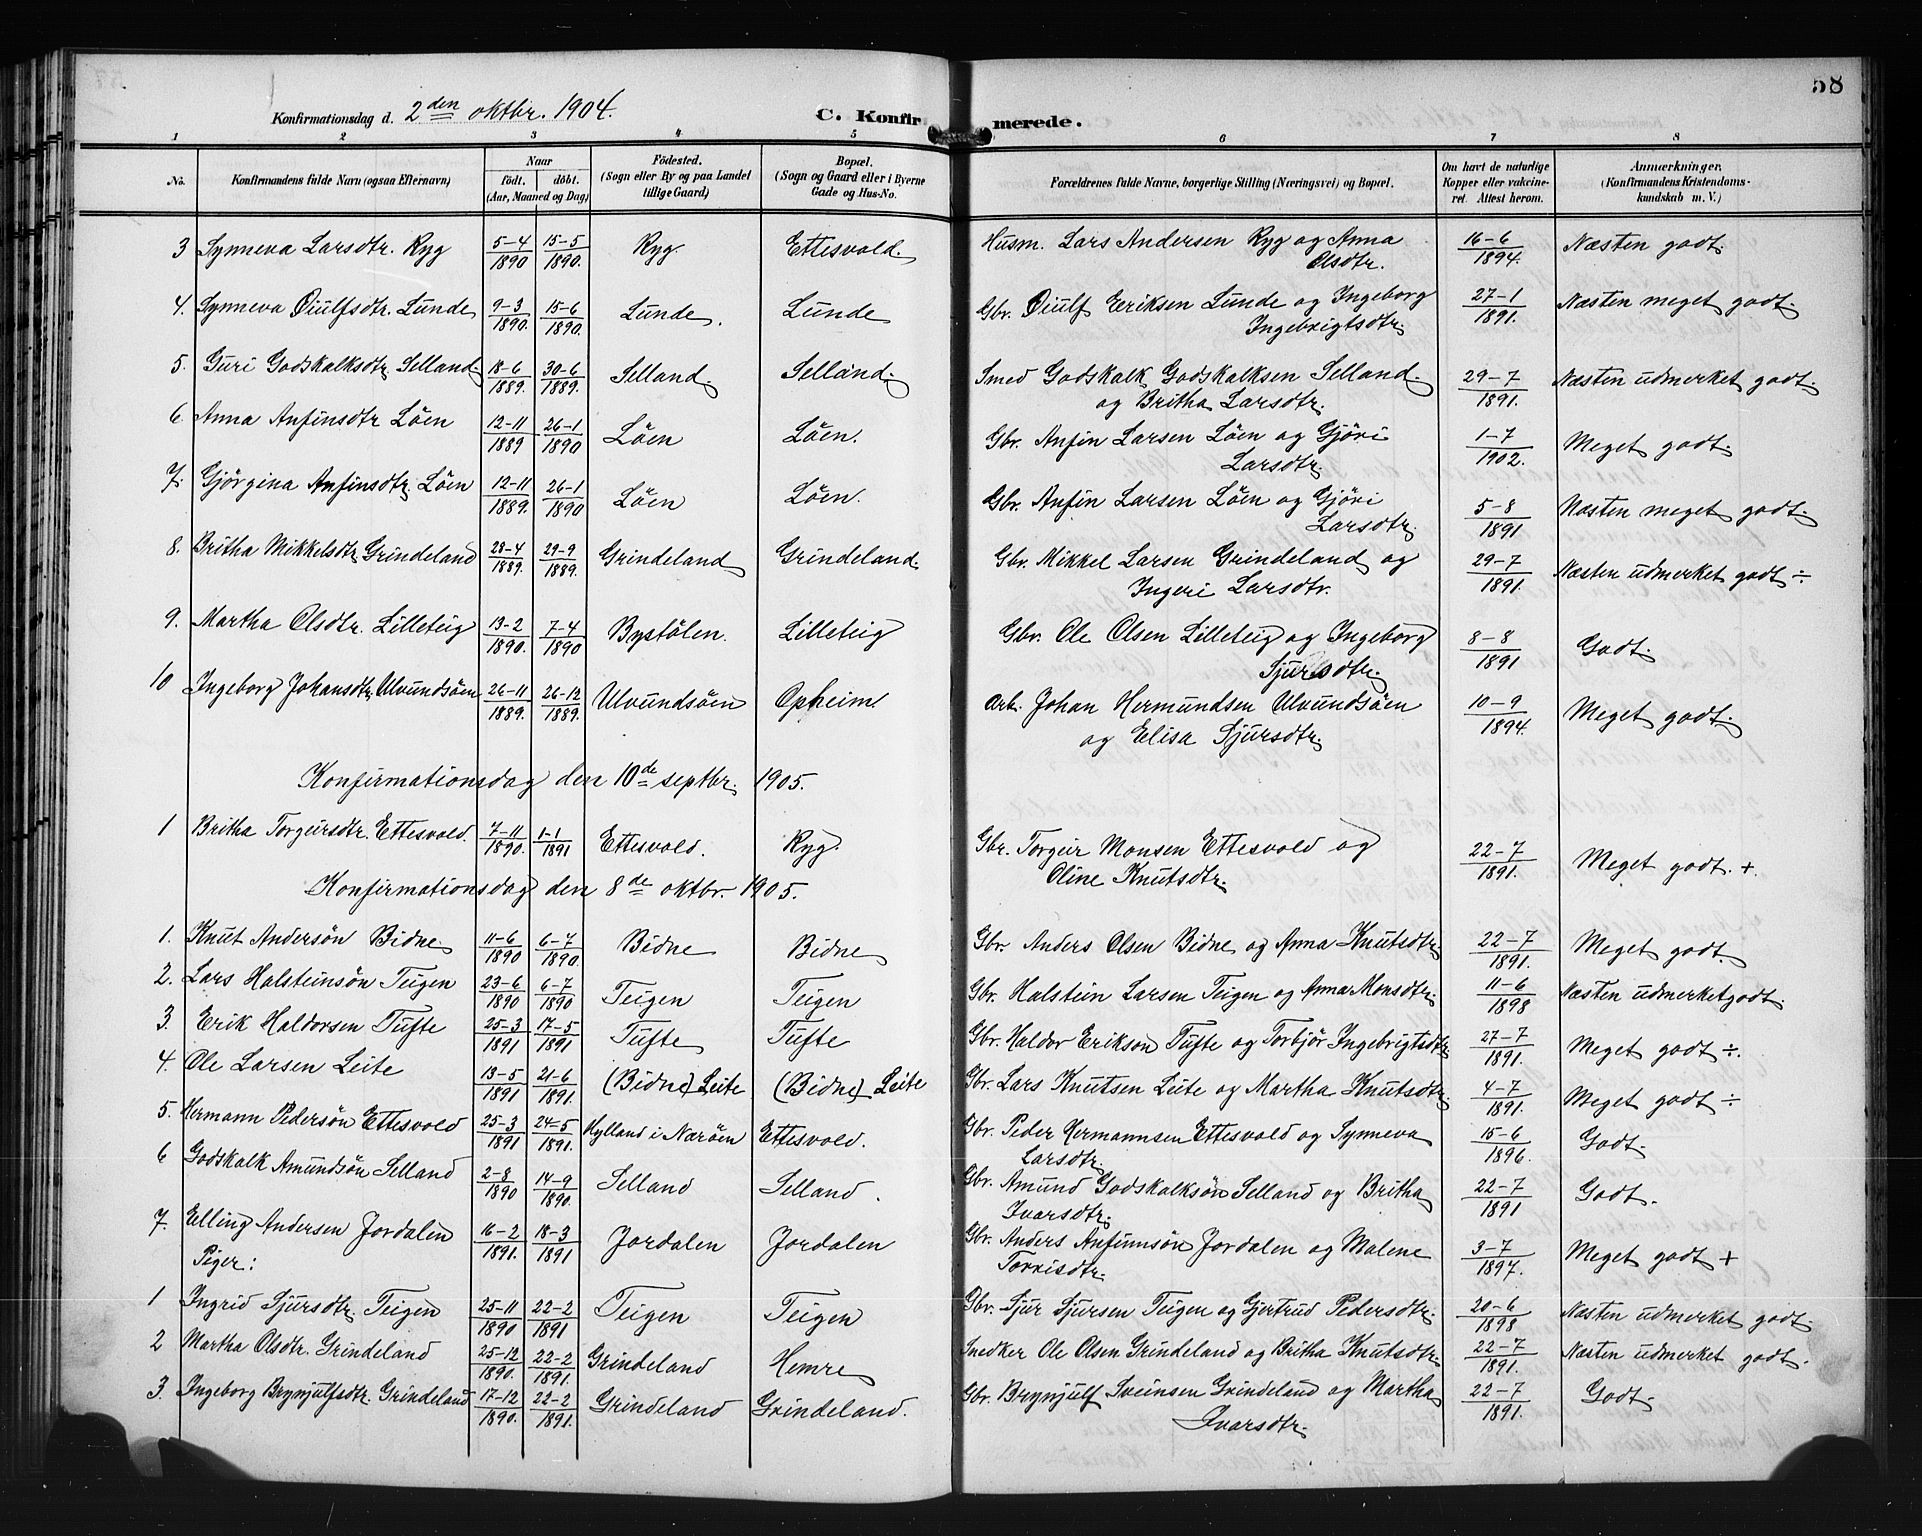 58
Konfirmationsdag d. 2den oktbr. 1904. C. Konfirmerede.
1 2 3 4 5 6 7 8
No. Konfirmandens fulde Navn (ogsaa Efternavn) Naar født. døbt. (Aar, Maaned og Dag) Fødested. (Sogn eller By og paa Landet tillige Gaard) Bopæl. (Sogn og Gaard eller i Byerne Gade og Hus-No. Forældrenes fulde Navne, borgerlige Stilling (Næringsvei) og Bopæl. Om havt de naturlige Kopper eller vakcineret. Attest herom. Anmærkninger. (Konfirmandens Kristendomskundskab m. V.)
3 Synneva Larsdtr. Ryg 5-4 1890 15-5 1890. Ryg. Ettesvold. Husm. Lars Andersen Ryg og Anna Olsdtr. 16-6 1894. Næsten godt.
4. Synneva Oiulfsdtr. Lunde 9-3 1890. 15-6 1890. Lunde. Lunde Gbr. Oiulf Eriksen Lunde og Ingeborg Ingebrigtsdtr. 27-1 1891. Næsten meget godt.
5. Guri Godskalksdtr. Selland. 18-6 1889. 30-6 1889. Selland. Selland. Smed Godskalk Godskalksen Selland og Britha Larsdtr. 29-7 1891. Næsten udmerket godt.
6 Anna Anfinsdtr Löen 12-11 1889 26-1 1890 Löen Löen. Gbr. Anfin Larsen Löen og Gjöri Larsdtr. 1-7 1902. Meget godt.
7. Gjörgina Anfinsdtr. Löen 12-11 1889. 26-1 1890 Löen Löen. Gbr. Anfin Larsen Löen og Gjöri Larsdtr. 5-8 1891 Næsten meget godt.
8. Britha Mikkelsdtr. Grindeland 28-4 1889. 29-9 1889. Grindeland Grindeland. Gbr. Mikkel Larsen Grindeland og Ingeri Larsdtr. 29-7 1891. Næsten udmerket godt ÷
9. Martha Olsdtr. Lilleteig 13-2 1890. 7-4 1890 Bystölen. Lilleteig Gbr. Ole Olsen Lilleteig og Ingeborg Sjursdtr. 8-8 1891 Godt.
10 Ingeborg Johansdtr. Ulvundsöen 26-11 1889. 26-12 1889. Ulvundsöen Opheim Arb. Johan Hermundsen Ulvundsöen og Elisa Sjursdtr. 10-9 1894. Meget godt.
Konfirmationsdag den 10de septbr. 1905.
1 Britha Torgeirsdtr. Ettesvold. 7-11 1890. 1-1 1891 Ettesvold. Ryg. Gbr. Torgeir Monsen Ettesvold og Oline Knutsdtr. 22-7 1891. Meget godt. +
Konfirmationsdag den 8de oktbr. 1905.
1. Knut Andersön Bidne. 11-6 1890 6-7 1890. Bidne Bidne Gbr. Anders Olsen Bidne og Anna Knutsdtr. 22-7 1891. Meget godt.
2. Lars Halsteinsön Teigen 23-6 1890 6-7 1890 Teigen Teigen Gbr. Halstein Larsen Teigen og Anna Monsdtr. 11-6 1898 Næsten udmerketgodt.
3. Erik Haldorsen Tufte 25-3 1891 17-5 1891 Tufte Tufte Gbr. Haldor Erikson Tufte og Torbjör Ingebrigtsdtr. 27-7 1891. Meget godt ÷.
4. Ole Larsen Leite 13-5 1891 21-6 1891. (Bidne) Leite (Bidne) Leite Gbr. Lars Knutsen Leite og Martha Knutsdtr. 4-7 1891. Meget godt ÷
5. Hermann Pedersön Ettesvold 25-3 1891 24-5 1891. Hylland i Nærøen Ettesvold. Gbr. Peder Hermannsen Ettesvold og Synneva Larsdtr. 15-6 1896. Godt.
6 Godskalk Amundsön Selland 2-8 1890 14-9 1890. Selland Selland. Gbr. Amund Godskalksön Selland og Britha Ivarsdtr. 22-7 1891 Godt.
7. Elling Andersen Jordalen 16-2 1891. 18-3 1891 Jordalen Jordalen Gbr. Anders Anfinnsön Jordalen og Malene Torrisdtr. 3-7 1897. Meget godt +
Piger:
1 Ingrid Sjursdtr. Teigen 25-11 1890 22-2 1891 Teigen Teigen Gbr. Sjur Sjursen Teigen og Gjertrud Pedersdtr. 20-6 1898 Næsten udmerket godt.
2 Martha Olsdtr. Grindeland 25-12 1890. 22-2 1891. Grindeland Hemre Snedker Ole Olsen Grindeland og Britha Knutsdtr. 22-7 1891. Næsten udmerket godt.
3. Ingeborg Brynjulfsdtr. Grindeland 17-12 1890. 22-2 1891. Grindeland Grindeland. Gbr. Brynjulf Sveinsen Grindeland og Martha Ivarsdtr. 22-7 1891. Godt.